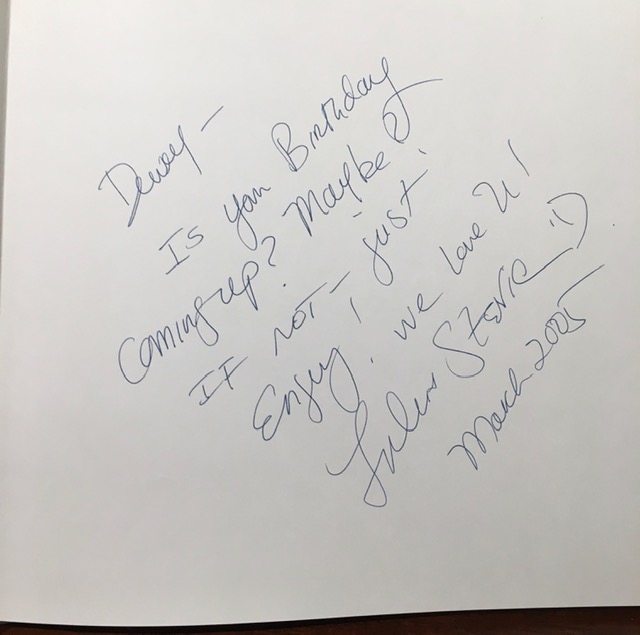 Dewey -
Is your Birthday
Coming up? Maybe
If not - just
Enjoy! we love U!
Stevie :)
March 2005